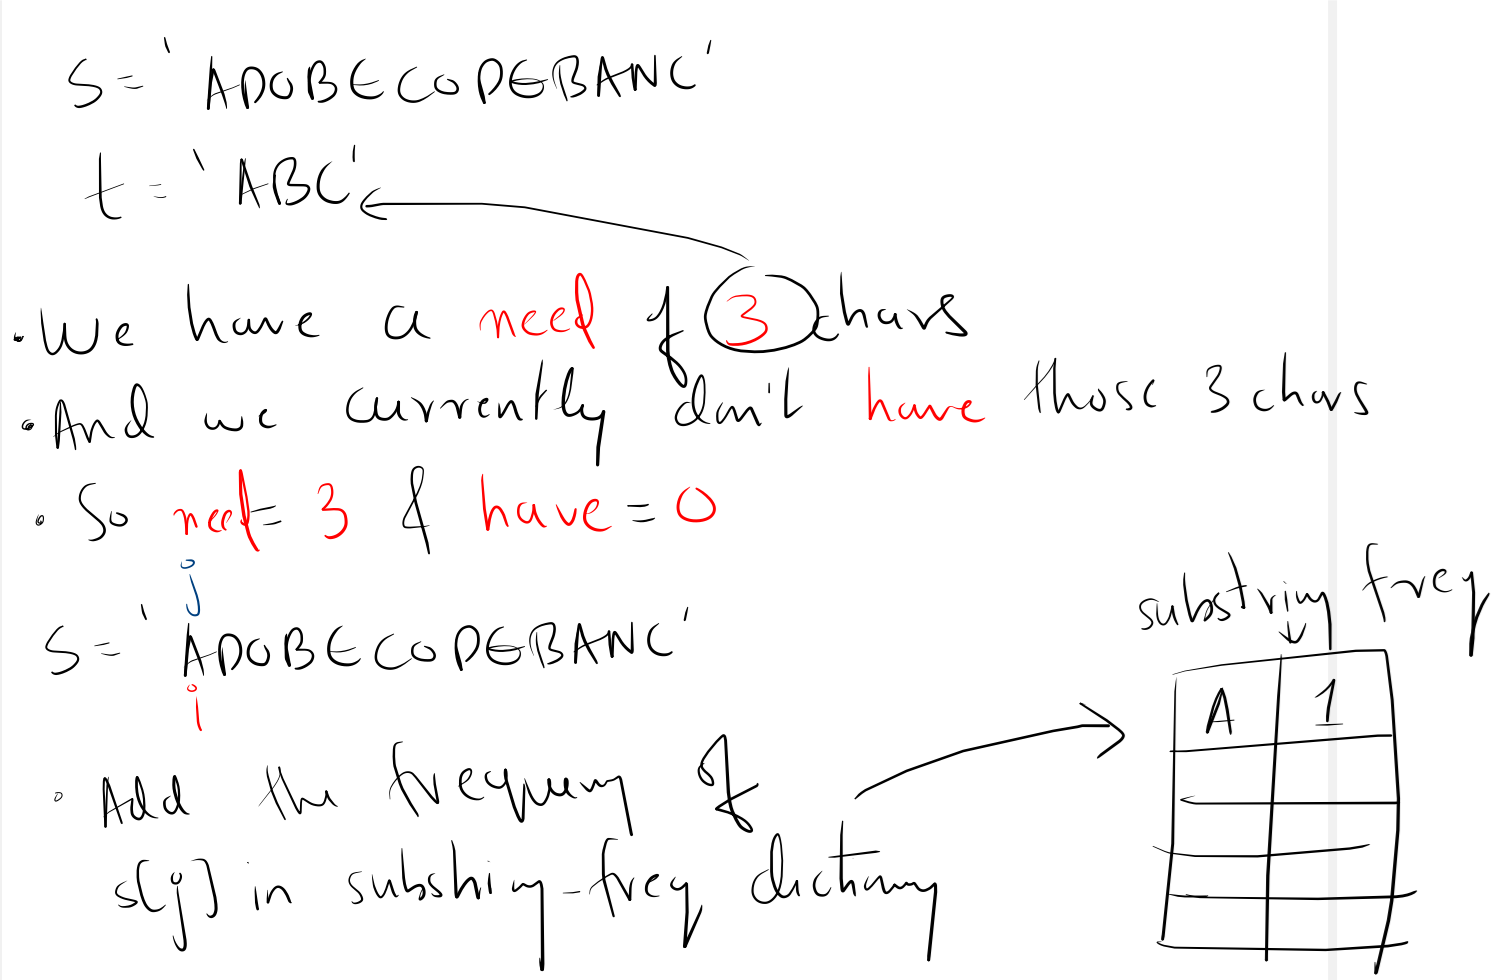 S = 'ADOBECODEBANC'
t = 'ABC'
• We have a need of 3 chars
• And we currently don't have those 3 chars
• So need = 3 & have = 0
j
S = 'ADOBECODEBANC'
i
• Add the frequency of
s[j] in substring-freq dictionary
substring freq
A 1